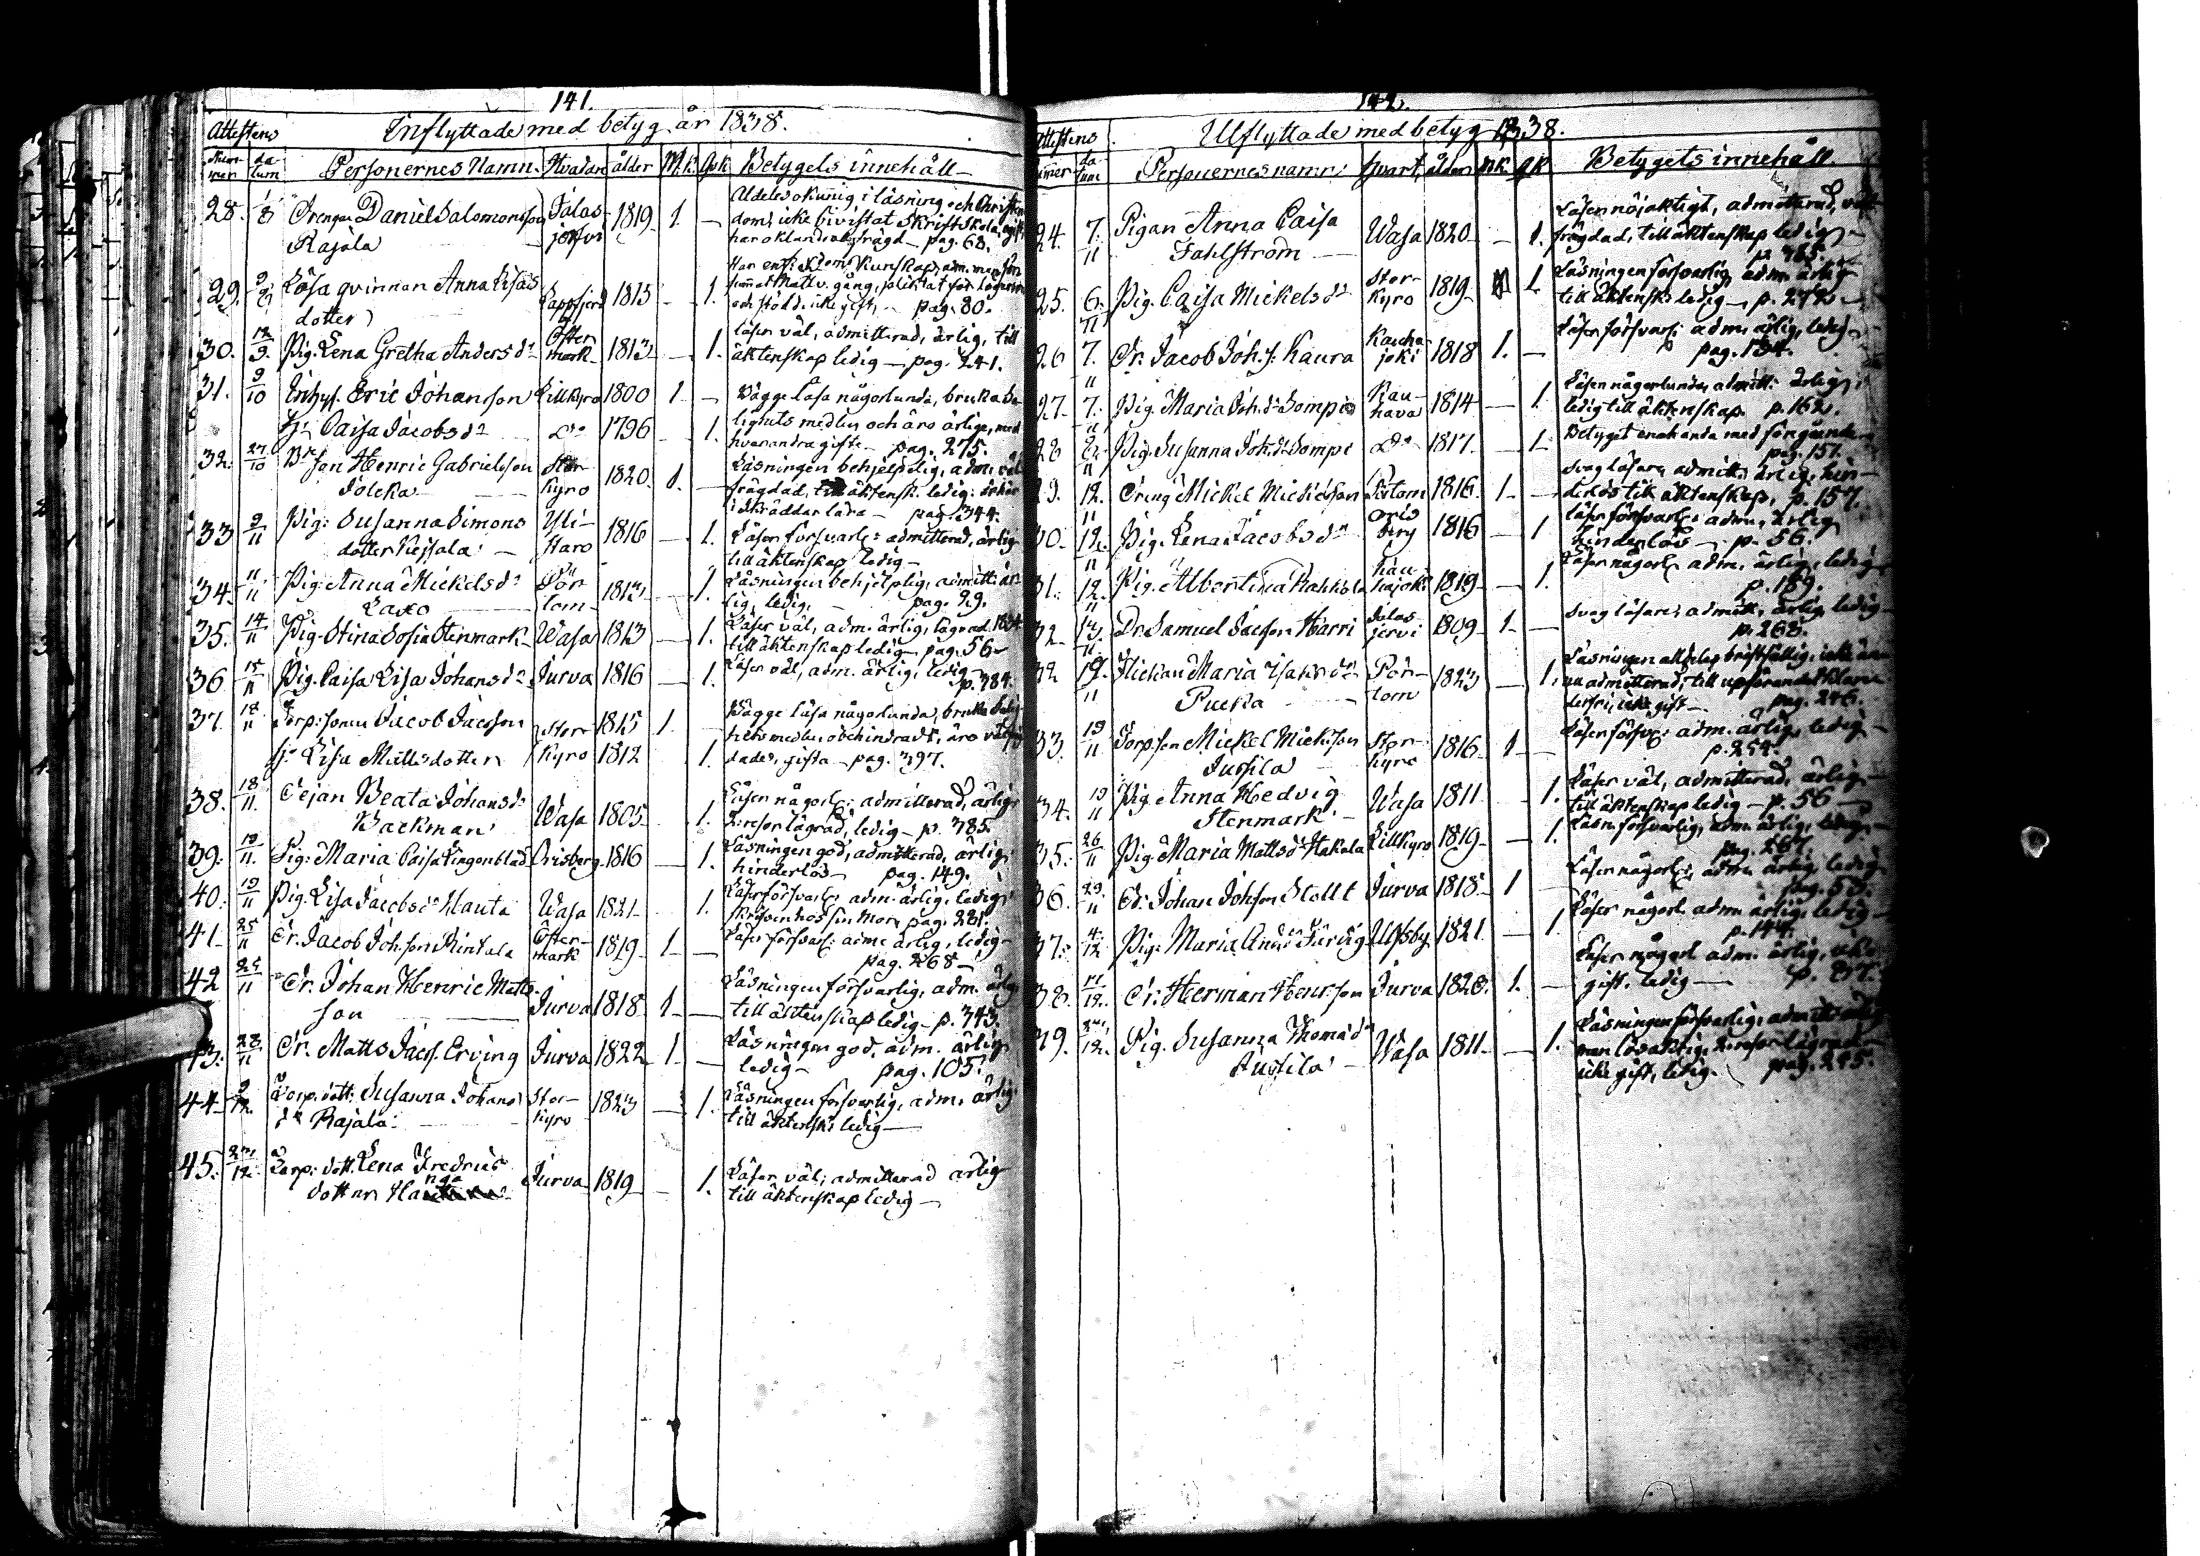 141.
Inflyttade med betyg år 1838.
Attestens
Num-mer da-tum Personernes Namn. Hvadan ålder M.k. Qvk. Betygets innehåll
28. 1/8 Drengen Daniel Salomonsson Rajala Ilasjerfvi 1819 1. —
Aldeles okunnig i läsning och Christen
dom, icke bivistat Skriftskola,
har oklandrad frägd — pag. 68.
29. Lösa qvinnan Anna Lisas dotter Lappfjerd 1813 — 1. pag. 80.
30. 12/9 Pig. Lena Gretha Anders dr Östermark 1813 — 1.
läser väl, admitterad, ärlig, till
äktenskap ledig — pag. 241.
31. 9/10 Inhys. Eric Johansson Lillkyro 1800 1. —
Bägge läsa någorlunda, bruka sa
H. Caisa Jacobsdr Do 1796 1.
lighets medlen och äro ärlige, med
hvarandra gifte — pag. 275.
32. 27/10 Bdeson Henric Gabrielsson Jolcka Storkyro 1820. 1. —
Läsningen behjelpelig, adm. väl
frägdad, till äktensk. ledig:
i skräddar lära — pag. 344.
33 9/11 Pig: Susanna Simons dotter Keisala Yli-Haro 1816 — 1.
Läser försvarl: admitterad, ärlig
till äktenskap ledig —
34. 11/11 Pig. Anna Mickelsdr Laxo Pörtom 1813 — 1.
Läsningen behjelplig, admitt. är
lig, ledig. — pag. 29.
35. 14/11 Pig. Stina Sofia Stenmark Wasa 1813 — 1.
Läser väl, adm. ärlig, lägrad 1834
till äktenskap ledig — pag. 56
36. 15/11 Pig. Caisa Lisa Johansdr Jurva 1816 — 1.
Läser väl, adm. ärlig, ledig — p. 384.
37. 18/11 Torp:sonen Jacob Jacsson Storkyro 1815 1.
Bägge läsa någorlunda, bruka salig
h. Lisa Mattsdotter 1812 1.
hets medlen obehindradt, äro välfräg
dade, gifta — pag. 397.
38. 18/11. Pejan Beata Johansdr Backman Wasa 1805 1.
Läser någorl: admitterad, ärlig
2. resor lägrad, ledig — p. 385.
39. 19/11. Pig: Maria Caisa Lingonblad Crisberg 1816 — 1.
Läsningen god, admitterad, ärlig,
hinderlös — pag. 149.
40. 19/11 Pig. Lisa Jacobsdr Hauta Wasa 1821 1.
Läser försvarl. adm. ärlig, ledig
skrifven hos sin Mor pag. 281
41 25/11 Dr. Jacob Joh.son Rintala Östermark 1819 1 —
Läser försvarl: adm. ärlig, ledig
pag. 268 —
42 25/11 Dr. Johan Henric Matts son Jurva 1818 1 —
Läsningen försvarlig, adm. ärlig
till äktenskap ledig — p. 343.
43. 28/11 Dr. Matts Jacs. Erving Jurva 1822 1 —
Läsningen god, adm. ärlig
ledig — pag. 105.
44 9/12. Torp. dott. Susanna Johansdr Rajala Storkyro 1823 — 1.
Läsningen försvarlig, adm. ärlig
till äktensk: ledig —
45. 24/12. Torp: dott. Lena Fredrics dotter Hanga Jurva 1819 — 1.
Läser väl; admitterad ärlig
till äktenskap ledig —
142.
Utflyttade med betyg 1838.
Attestens
mer da-tum Personernes namn: hvart, ålder mk. qk. Betygets innehåll.
24. 7/11 Pigan Anna Caisa Fahlström — Wasa 1820 — 1.
Läser nöjaktigt, admitterad, väl
frägdad, till äktenskap ledig —
p. 385.
25. 6/11 Pig. Caisa Mickelsdr Storkyro 1819 1.
Läsningen försvarlig, adm. ärlig
till äktensk. ledig — p. 272
26 7/11 Dr. Jacob Joh.s. Kaura Kauhajoki 1818 1. —
Läser försvarl: adm. ärlig, ledig
pag. 134.
27. 7/11 Pig. Maria Joh.dr Sompi Kauhava 1814 — 1.
Läser någorlunda, admitt: ärlig,
ledig till äktenskap. p. 162.
28 8/11 Pig. Susanna Joh.dr Sompi Do 1817. — 1.
Betyget enahanda med föregående
pag. 157.
29. 12/11 Dreng Mickel Mickelsson Pörtom 1816. 1. —
Svag läsare, admitt. ärlig, hin-
derlös till äktenskap, p. 157.
30. 12/11 Pig. Lena Jacobsdr Crisberg 1816 — 1
läser försvarl: adm., ärlig
hinderlös — p. 56.
31. 12/11 Pig. Albertina Rahkola Kauhajoki 1819 — 1.
Läser någorl. adm. ärlig, ledig
p. 189.
32 13/11 Dr Samuel Jacsson Harri Ilasjervi 1809 1. —
Svag läsare, admitt, ärlig, ledig
p. 268.
32 19/11 Flickan Maria Isaksdr Pucka Pörtom 1823 — 1.
Läsningen alldeles bristfällig, icke än
nu admitterad, till uppförandet
icke gift — pag. 246.
33. 19/11 Torp.son Mickel Micksson Jussila Storkyro 1816 1 —
Läser försv: adm. ärlig, ledig —
p. 254.
34. 19/11 Pig Anna Hedvig Stenmark. — Wasa 1811 — 1.
Läser väl, admitterad, ärlig,
till äktenskap ledig — p. 56
35. 26/11 Pig. Maria Mattsdr Hakala Lillkyro 1819 — 1.
Läsn. försvarlig, adm. ärlig, ledig
pag. 267.
36. 29/11 Dr. Johan Johsson Stollt Jurva 1818 1 —
Läser någorl: adm. ärlig, ledig
pag. 53.
37. 4/12 Pig. Maria Andersdr Färdig Ulfsby 1821 — 1.
Läser någorl. adm. ärlig, ledig
p. 144.
38. 17/12. Dr. Herman Henr.son Jurva 1820. 1. —
Läser någorl adm. ärlig, icke
gift, ledig —
39. 24/12. Pig. Susanna Thomasdr Jussila — Wasa 1811 — 1.
Läsningen försvarlig, admitt. ärlig
men lösaktig, 2. resor lägrad
icke gift, ledig. pag. 245.